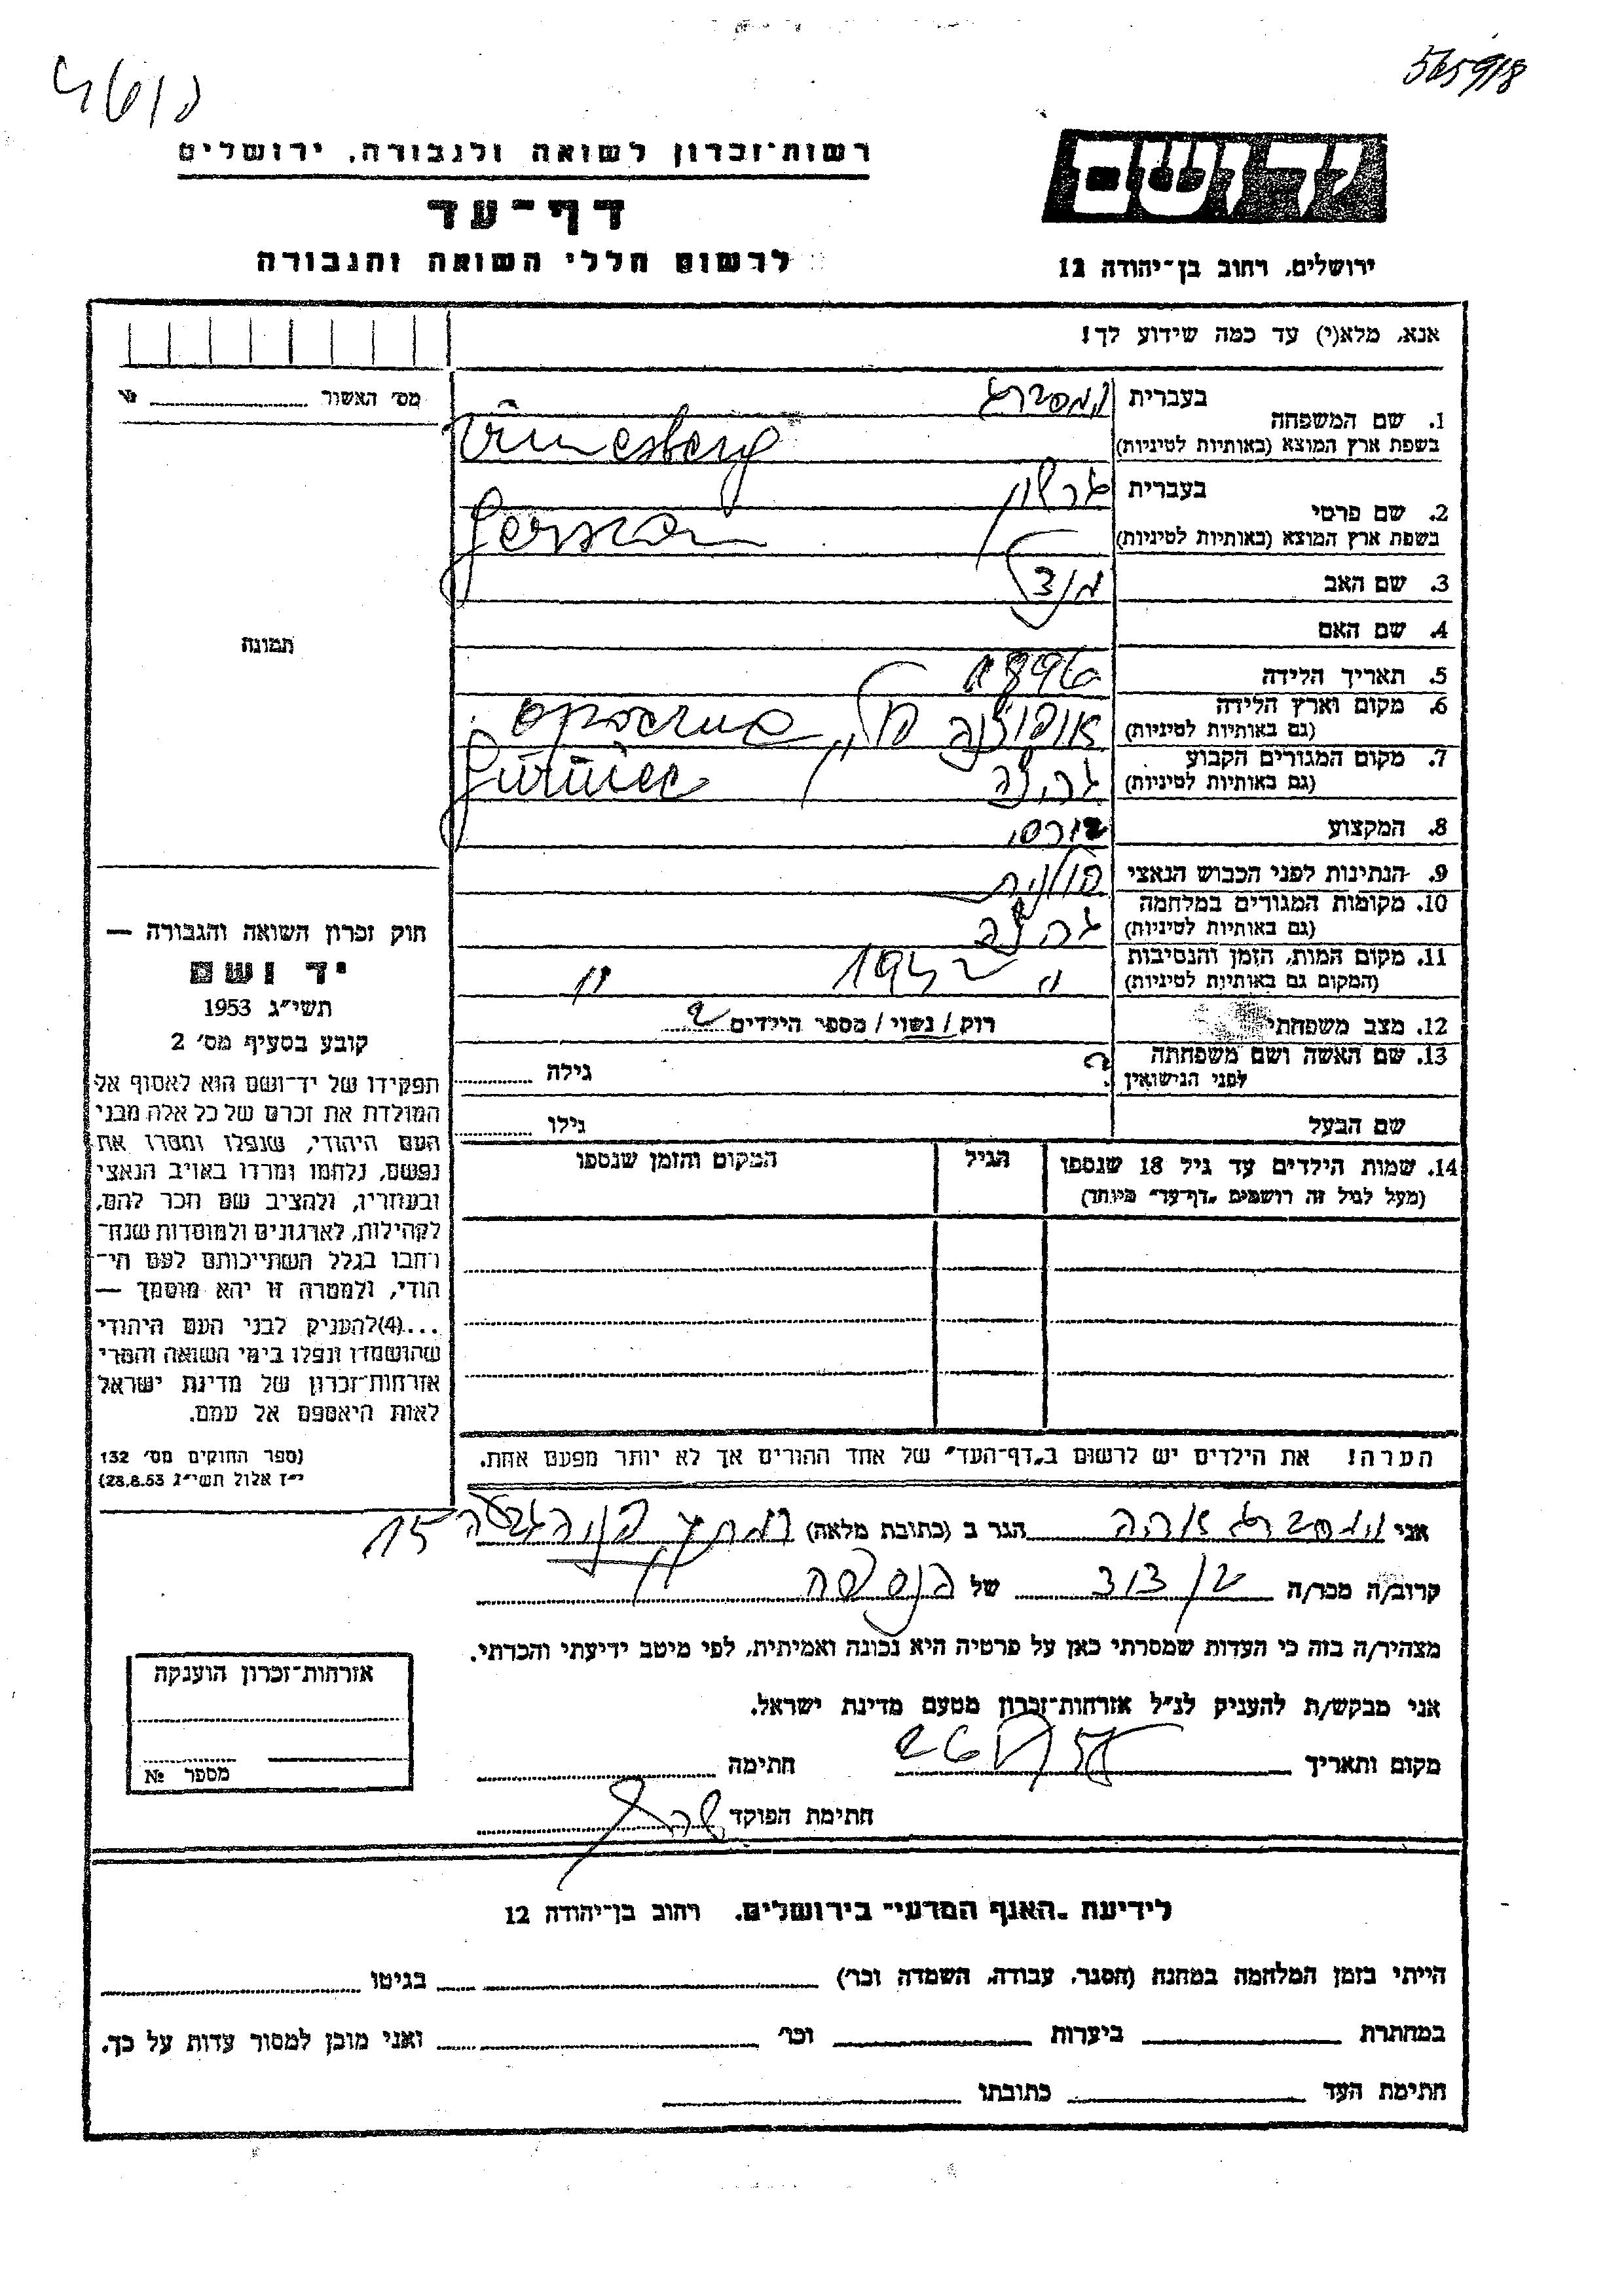 565918
רשות־זכרון לשואה ולגבורה, ירושלים
דף־עד
לרשום חללי השואה והגבורה
יד ושם
ירושלים, רחוב בן־יהודה 12
אנא, מלא(י) עד כמה שידוע לך!
מס׳ האשור
1. שם המשפחה
בעברית
בשפת ארץ המוצא (באותיות לטיניות)
2. שם פרטי
בעברית גרשון
בשפת ארץ המוצא (באותיות לטיניות) Gerson
3. שם האב
4. שם האם
5. תאריך הלידה
6. מקום וארץ הלידה
(גם באותיות לטיניות)
7. מקום המגורים הקבוע
(גם באותיות לטיניות)
8. המקצוע בורסי
9. הנתינות לפני הכבוש הנאצי פולנית
10. מקומות המגורים במלחמה
(גם באותיות לטיניות)
11. מקום המות, הזמן והנסיבות
(המקום גם באותיות לטיניות) 1942
12. מצב משפחתי רוק / נשוי / מספר הילדים 2
13. שם האשה ושם משפחתה ? גילה
לפני הנישואין
שם הבעל גילו
14. שמות הילדים עד גיל 18 שנספו הגיל המקום והזמן שנספו
(מעל לגיל זה רושמים „דף־עד״ מיוחד)
הערה! את הילדים יש לרשום ב„דף־העד״ של אחד ההורים אך לא יותר מפעם אחת.
תמונה
חוק זכרון השואה והגבורה —
יד ושם
תשי״ג 1953
קובע בסעיף מס׳ 2
תפקידו של יד־ושם הוא לאסוף אל
המולדת את זכרם של כל אלה מבני
העם היהודי, שנפלו ומסרו את
נפשם, נלחמו ומרדו באויב הנאצי
ובעוזריו, ולהציב שם וזכר להם,
לקהילות, לארגונים ולמוסדות שנח־
רבו בגלל השתייכותם לעם הי־
הודי, ולמטרה זו יהא מוסמך —
...(4)להעניק לבני העם היהודי
שהושמדו ונפלו בימי השואה והמרי
אזרחות־זכרון של מדינת ישראל
לאות היאספם אל עמם.
(ספר החוקים מס׳ 132
י״ז אלול תשי״ג 28.8.53)
אני הגר ב (כתובת מלאה) 15
קרוב/ה מכר/ה בן דוד של הנספה
מצהיר/ה בזה כי העדות שמסרתי כאן על פרטיה היא נכונה ואמיתית, לפי מיטב ידיעתי והכרתי.
אני מבקש/ת להעניק לנ״ל אזרחות־זכרון מטעם מדינת ישראל.
מקום ותאריך חתימה
חתימת הפוקד
אזרחות־זכרון הוענקה
מספר №
לידיעת „האגף המדעי״ בירושלים, רחוב בן־יהודה 12
הייתי בזמן המלחמה במחנה (הסגר, עבודה, השמדה וכו׳) בגיטו
במחתרת ביערות וכו׳ ואני מוכן למסור עדות על כך.
חתימת העד כתובתו